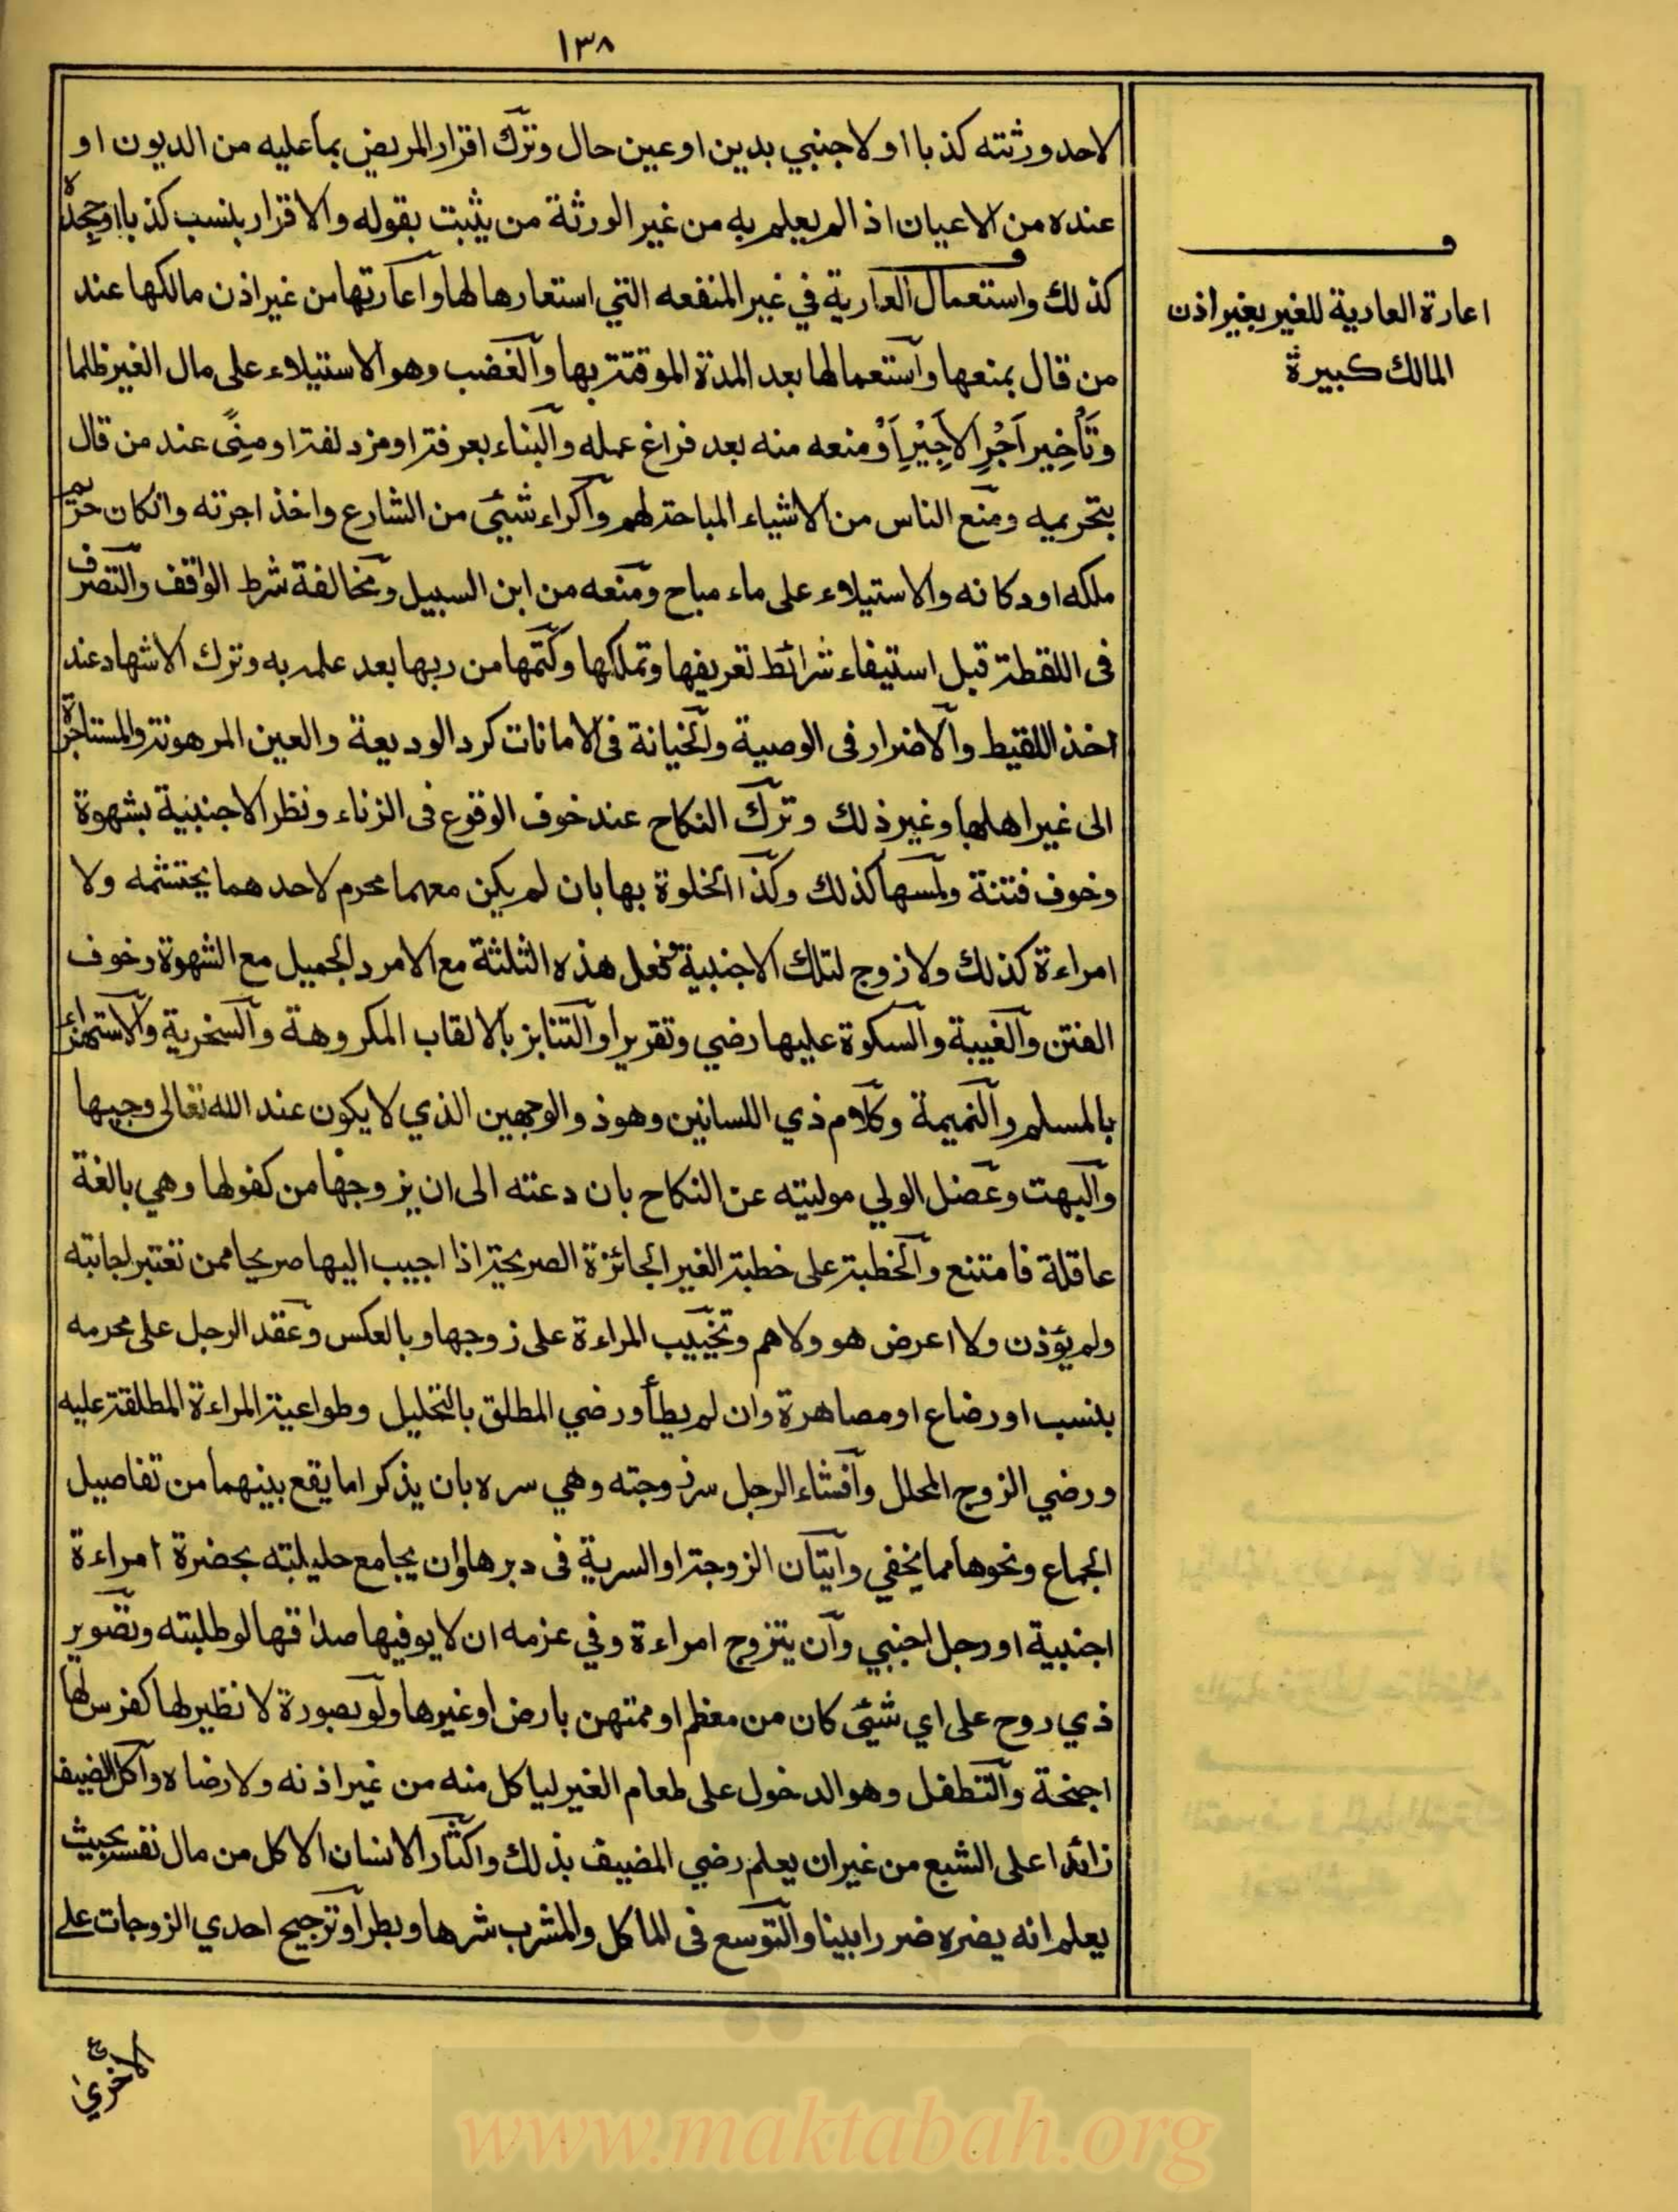 ١٣٨
لاحد ورثته كذبا او لاجنبي بدين او عين حال وترك اقرار المريض بما عليه من الديون او
عنده من الاعيان اذا لم يعلم به من غير الورثة من يثبت بقوله والاقرار بنسب كذبا او جحده
كذلك واستعمال العارية في غير المنفعه التي استعارها لها واعارتها من غير اذن مالكها عند
من قال بمنعها واستعمالها بعد المدة الموقتة بها والغضب وهو الاستيلاء على مال الغير ظلما
وتَأْخِير اَجْرِ الاَجِيْرِ اَوْ منعه منه بعد فراغ عمله والبناء بعرفة او مزدلفة او مِنًى عند من قال
بتحريمه ومنع الناس من الاشياء المباحة لهم واكراء شيئ من الشارع واخذ اجرته وانكان حريم
ملكه او دكانه والاستيلاء على ماء مباح ومنعه من ابن السبيل ومخالفة شرط الواقف والتصرف
فى اللقطة قبل استيفاء شرائط تعريفها وتملكها وكتمها من ربها بعد علمه به وترك الاشهاد عند
اخذ اللقيط والاضرار فى الوصية والخيانة فى الامانات كرد الوديعة والعين المرهونة والمستاجرة
الى غير اهلها وغير ذلك وترك النكاح عند خوف الوقوع فى الزناء ونظر الاجنبية بشهوة
وخوف فتنة ولمسها كذلك وكذا الخلوة بها بان لم يكن معهما محرم لاحدهما يحتشمه ولا
امراءة كذلك ولا زوج لتلك الاجنبية وفعل هذه الثلثة مع الامرد الجميل مع الشهوة وخوف
الفتن والغيبة والسكوة عليها رضي وتقريرا والتنابز بالالقاب المكروهة والسخرية والاستهزاء
بالمسلم والنميمة وكلام ذي اللسانين وهو ذو الوجهين الذي لا يكون عند الله تعالى وجيها
والبهت وعضل الولي موليته عن النكاح بان دعته الى ان يزوجها من كفولها وهي بالغة
عاقلة فامتنع والخطبة على خطبة الغير الجائزة الصريحة اذا اجيب اليها صريحا ممن تعتبر اجابته
ولم يؤذن ولا اعرض هو ولا هم وتخبيب المراءة على زوجها وبالعكس وعقد الرجل على محرمه
بنسب او رضاع او مصاهرة وان لم يطأ ورضي المطلق بالتحليل وطواعية المراءة المطلقة عليه
ورضي الزوج المحلل وافشاء الرجل سر زوجته وهي سره بان يذكر اما يقع بينهما من تفاصيل
الجماع ونحوها مما يخفي وايتان الزوجة او السرية فى دبرها وان يجامع حليلته بحضرة امراءة
اجنبية او رجل اجنبي وان يتزوج امراءة وفي عزمه ان لا يوفيها صداقها لو طلبته وتصوير
ذي روح على اي شيئ كان من معظم او ممتهن بارض او غيرها ولو بصورة لا نظير لها كفرس لها
اجنحة والتطفل وهو الدخول على طعام الغير لياكل منه من غير اذنه ولا رضاه واكل الضيف
زائدا على الشبع من غير ان يعلم رضي المضيف بذلك واكثار الانسان الاكل من مال نفسه بحيث
يعلم انه يضره ضررا بينا والتوسع فى الماكل والمشرب شرها وبطرا وترجيح احدي الزوجات على
اعارة العارية للغير بغير اذن
المالك كبيرة
الاخري
www.maktabah.org